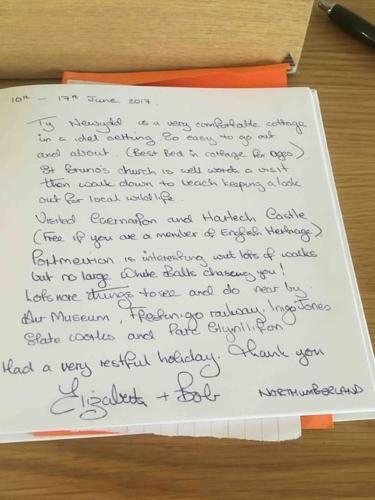 10th - 17th June 2017.
Ty Newydd is a very comfortable cottage
in a idel setting So easy to go out
and about. (Best Bed in cottage for ages)
St Bruno's church is well worth a visit
then walk down to beach keeping a look
out for local wildlife.
Visited Caernarfon and Harlech Castle
(Free if you are a member of English Heritage)
Portmeirion is interesting wint lots of walks
but no large White Balls chasing you!
Lots more things to see and do near by.
Air Museum, Ffestiniogo railway. Inigo Jones
Slate works and Parc Glynllifon
Had a very restful holiday. Thank you
Elizabeth + Bob
NORTHUMBERLAND